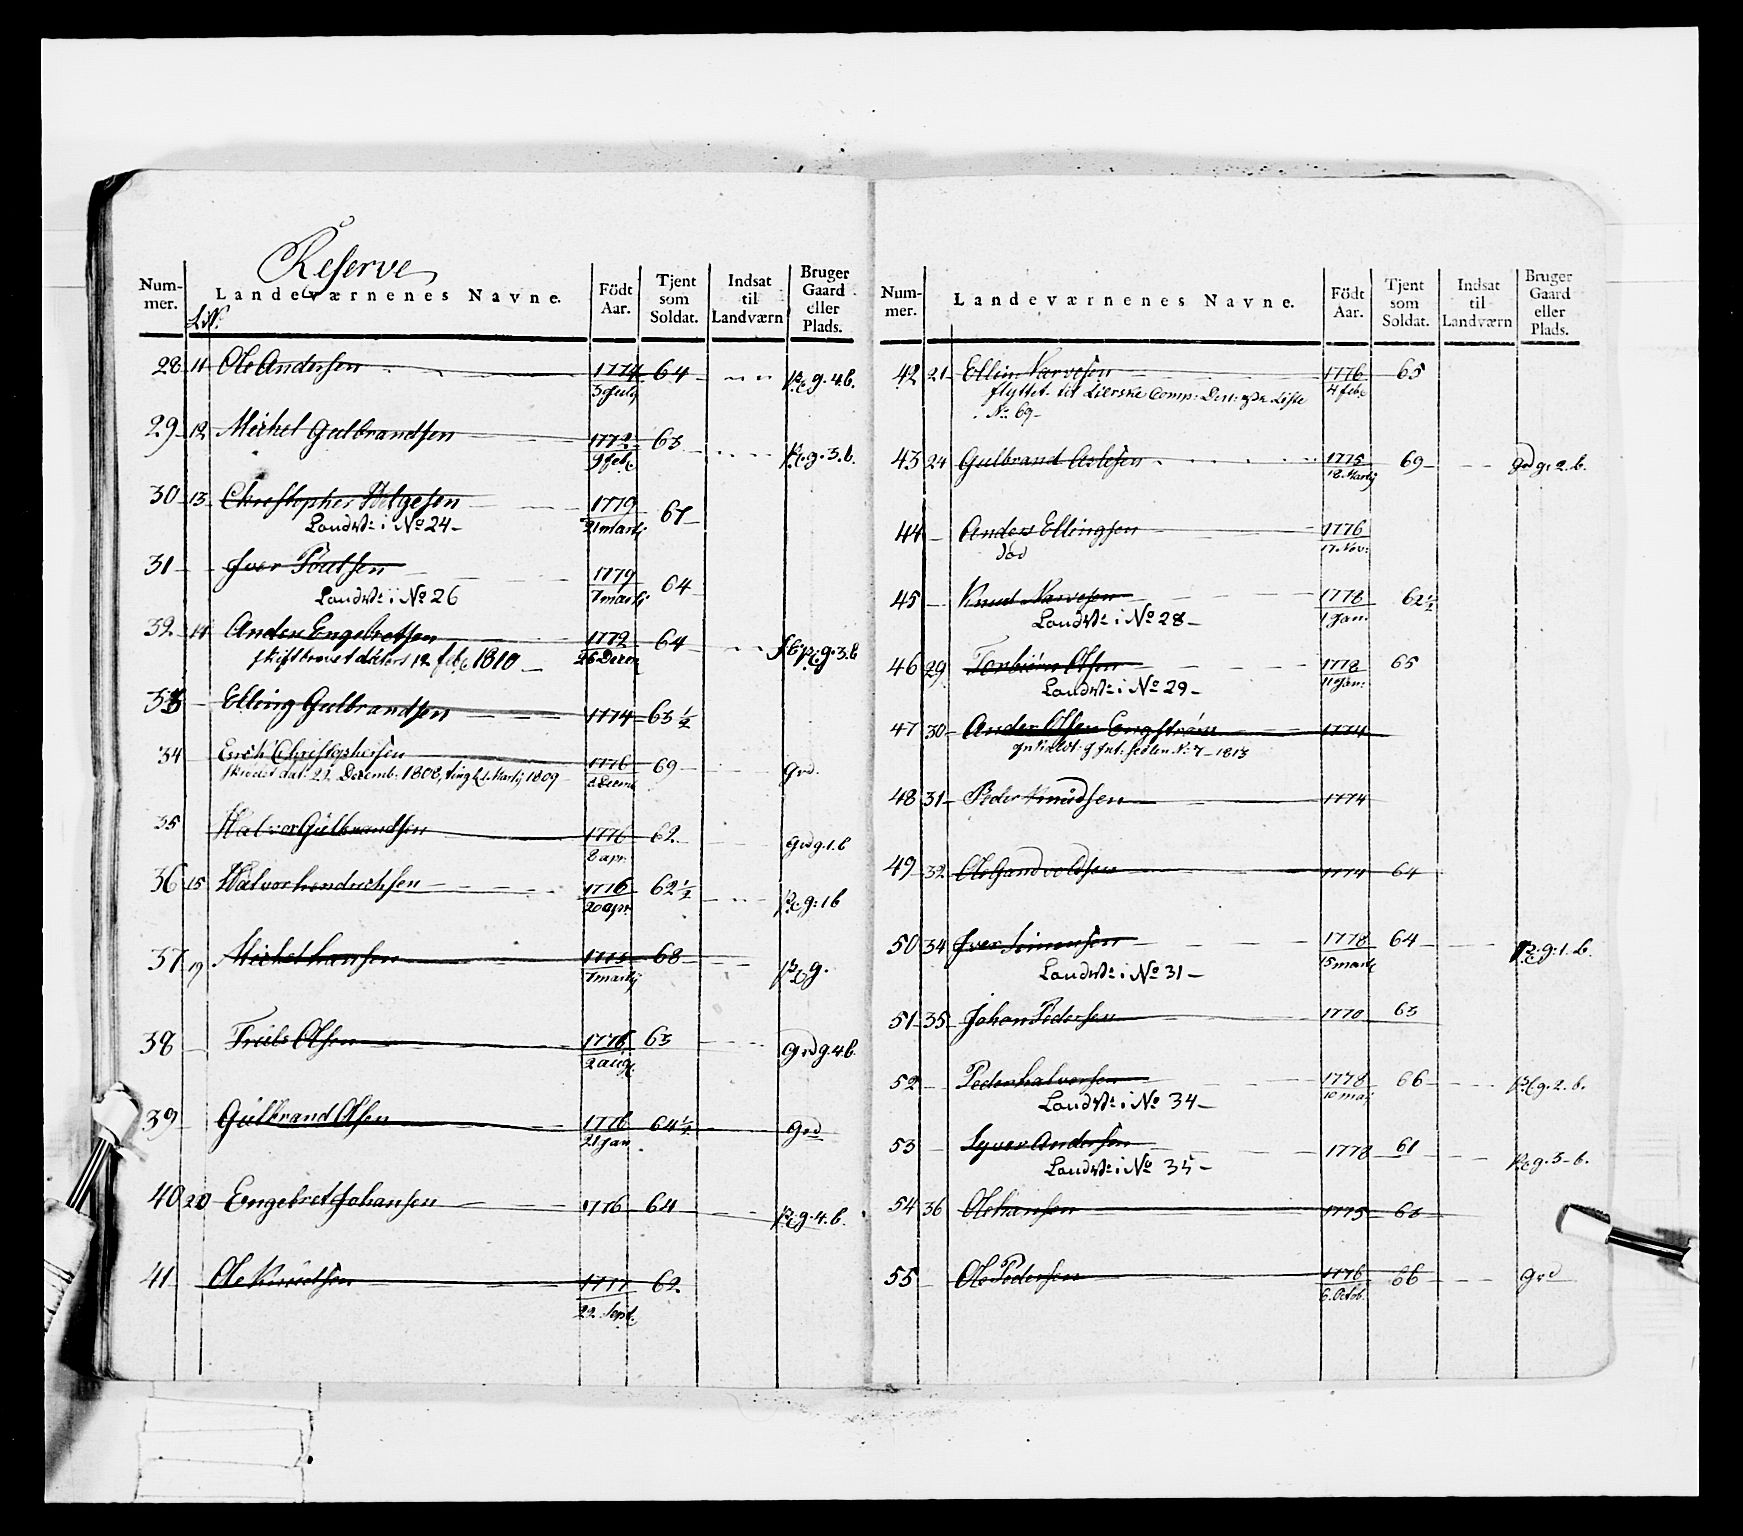 Reserve
Num-mer. Landeværnenes Navne. Födt Aar. Tjent som Soldat. Indsat til Landværn Bruger Gaard eller Plads.
28 11 Ole Andersen 1774 64 g. 4 b.
5 July
29 12 Michel Gulbrandsen 1772 63 g. 3. b.
9 feb
30 13 Christopher Helgesen 1779 67
Landv: i No 24 21 Martj
31 Iver Poulsen 1779 64
Landv: i No 26 7 Martj
32 14 Anders Engebretsen 1772 64 g. 3. b
12 feb 1810 26 Decem
33 Elling Gulbrandsen 1774 63 1/2
34 Erich Christophersen 1776 69 grd.
dat: 21 Decemb: 1808, ting l. 1. Martij 1809
35 Halvor Gulbrandsen 1776 62 grd g. 1. b
8 apr:
36 15 Halvor hendrichsen 1776 62 1/2 g: 1 b
20 apr
37 19 Michel hansen 1775 68 g.
7 martij
38 Truls Olsen 1776 63 grd g. 4 b.
2 aug
39 Gulbrand Olsen 1776 64 1/2 grd
21 jan
40 20 Engebret Johansen 1776 64 g. 4. b.
41 Ole Knudsen 1777 62
22. Sept.
Num-mer. Landeværnenes Navne. Födt Aar. Tjent som Soldat. Indsat til Landværn Bruger Gaard eller Plads.
42 21 Elling Narvesen 1776 65
flyttet til Lierske Comp: Liste 4 feb
No 69
43 24 Gulbrand Aslesen 1775 69 grd g. 2. b.
18. Martij
44 Anders Ellingsen 1776
død 17 Nov:
45 Knud Narvesen 1778 62 1/2
Landv: i No 28 1 Jan:
46 29 Torbiørn Olsen 1778 65
Landv: i No 29 11 Jan:
47 30 Anders Olsen Engstrøm 1774
No: 7 - 1813
48 31 Peder Knudsen 1774
49 32 Ole 1774 64
50 34 Iver Simensen 1778 64 g: 1. b.
Landv: i No 31 15 mart
51 35 Johan Pedersen 1770 63
52 Peder halvorsen 1778 66 g. 2. b.
Landv: i No 34 10 maj
53 Syver Andersen 1778 61 g. 5 b.
Landv: i No 35
54 36 Ole hansen 1775 63
55 Ole Pedersen 1776 66 grd
6. Octob.